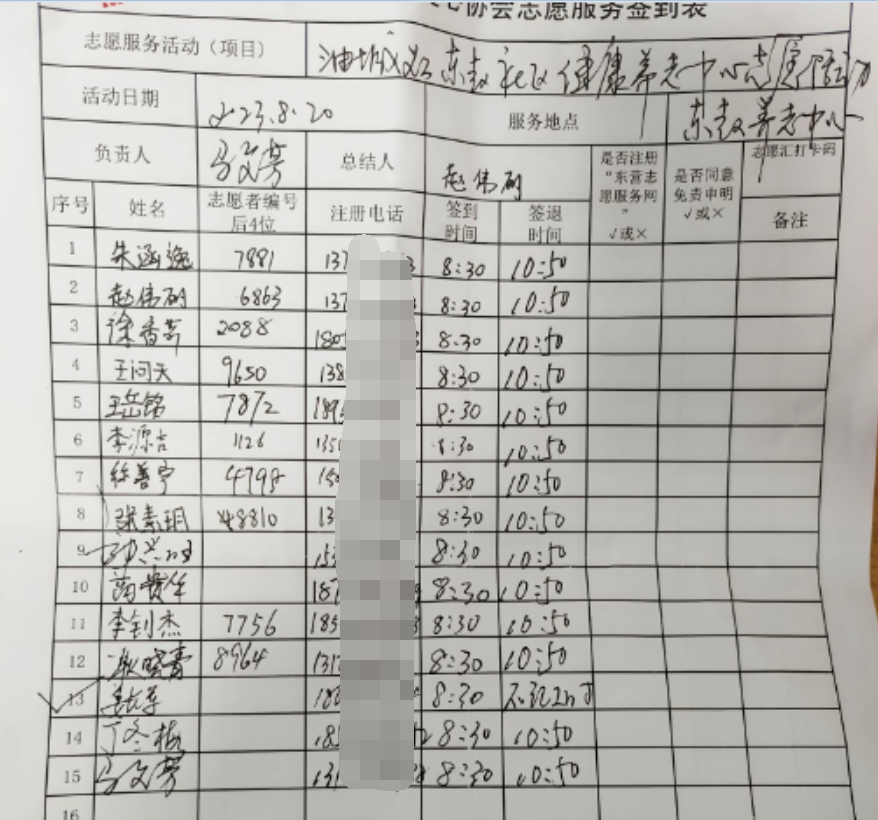 协会志愿服务签到表
志愿服务活动（项目） 油城义工东赵社区健康养老中心志愿活动
活动日期 2023.8.20 服务地点 东赵养老中心
负责人 马文芳 总结人 赵伟 是否注册“东营志愿服务网” √或× 是否同意免责申明 √或× 志愿汇打卡码
序号 姓名 志愿者编号后4位 注册电话 签到时间 签退时间 备注
1 朱涵逸 7881 137 3 8:30 10:50
2 赵伟 6863 137 8:30 10:50
3 徐香芹 2088 180 8:30 10:50
4 王问天 9650 138 8:30 10:50
5 王岳铭 7872 189 8:30 10:50
6 李源吉 1126 135 8:30 10:50
7 徐善宇 479 15 8:30 10:50
8 张素玥 48810 13 8:30 10:50
9 15 8:30 10:50
10 187 8:30 10:50
11 李钊杰 7756 185 8:30 10:50
12 晓青 8964 131 8:30 10:50
13 18 8:30
14 丁冬梅 18 2 8:30 10:50
15 马文芳 131 8:30 10:50
16